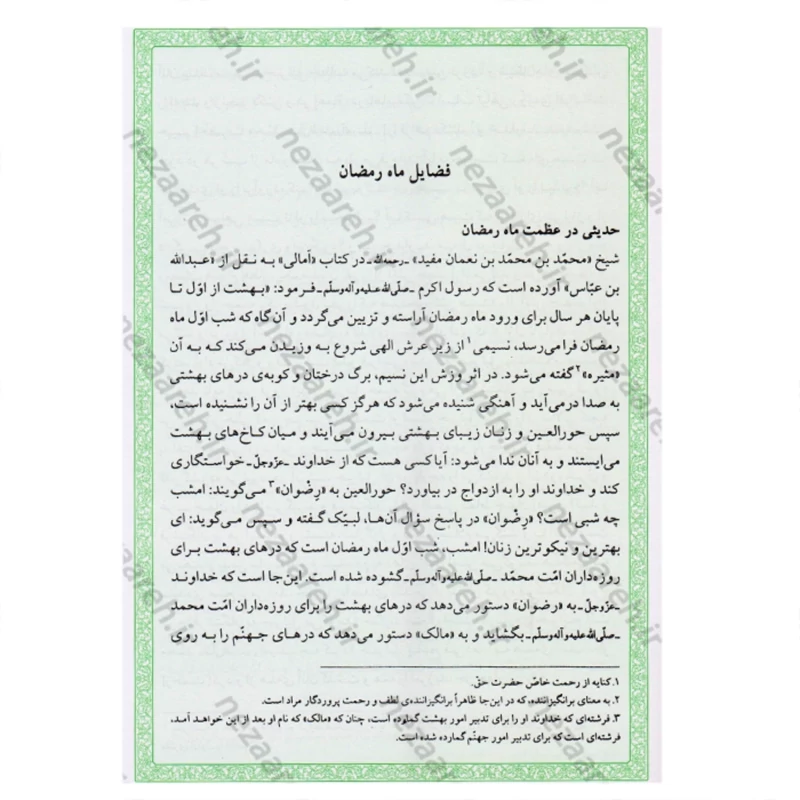 فضایل ماه رمضان
حدیثی در عظمت ماه رمضان
شیخ «محمّد بن محمّد بن نعمان مفید» ـ رحمه‌الله ـ در کتاب «أمالی» به نقل از «عبدالله
بن عبّاس» آورده است که رسول اکرم ـ صلّی الله علیه و آله وسلّم ـ فرمود: «بهشت از اوّل تا
پایان هر سال برای ورود ماه رمضان آراسته و تزیین می‌گردد و آن‌گاه که شب اوّل ماه
رمضان فرا می‌رسد، نسیمی۱ از زیر عرش الهی شروع به وزیدن می‌کند که به آن
«مثیره»۲ گفته می‌شود. در اثر وزش این نسیم، برگ درختان و کوبه‌ی درهای بهشتی
به صدا درمی‌آید و آهنگی شنیده می‌شود که هرگز کسی بهتر از آن را نشنیده است،
سپس حورالعین و زنان زیبای بهشتی بیرون می‌آیند و میان کاخ‌های بهشت
می‌ایستند و به آنان ندا می‌شود: آیا کسی هست که از خداوند ـ عزّوجلّ ـ خواستگاری
کند و خداوند او را به ازدواج در بیاورد؟ حورالعین به «رِضْوان»۳ می‌گویند: امشب
چه شبی است؟ «رِضْوان» در پاسخ سؤال آن‌ها، لبیّک گفته و سپس می‌گوید: ای
بهترین و نیکوترین زنان! امشب، شب اوّل ماه رمضان است که درهای بهشت برای
روزه‌داران امّت محمّد ـ صلّی الله علیه و آله وسلّم ـ گشوده شده است. این‌جا است که خداوند
ـ عزّوجلّ ـ به «رضوان» دستور می‌دهد که درهای بهشت را برای روزه‌داران امّت محمد
ـ صلّی الله علیه و آله وسلّم ـ بگشاید و به «مالک» دستور می‌دهد که درهای جهنّم را به روی
۱. کنایه از رحمت خاصّ حضرت حقّ.
۲. به معنای برانگیزاننده، که در این‌جا ظاهراً برانگیزاننده‌ی لطف و رحمت پروردگار مراد است.
۳. فرشته‌ای که خداوند او را برای تدبیر امور بهشت گمارده است، چنان که «مالک» که نام او بعد از این خواهد آمد،
فرشته‌ای است که برای تدبیر امور جهنّم گمارده شده است.
nezaareh.ir